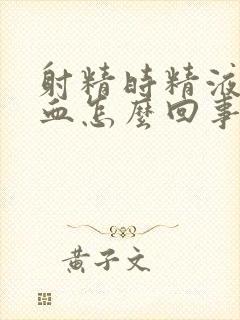 射精時精液
血怎麼回事
黃子文